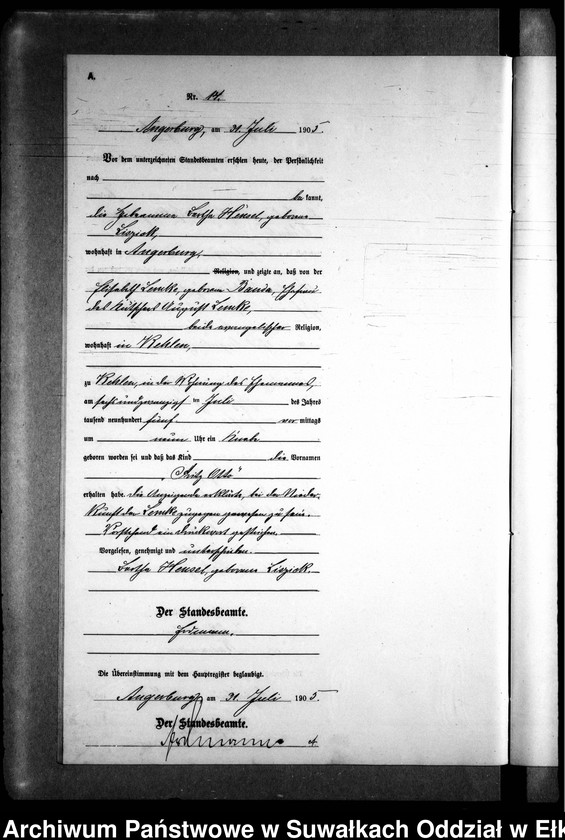 A.
Nr. 84.
Angerburg, am 31. Juli 1905.
Vor dem unterzeichneten Standesbeamten erschien heute, der Persönlichkeit
nach
be kannt,
die Hebamme Bertha Hensel, geborene
Liszick,
wohnhaft in Angerburg,
Religion, und zeigte an, daß von der
Elisabeth Lemke, geborene Banda, Ehefrau
des Kutschers August Lemke,
beide evangelischer Religion,
wohnhaft in Kehlen,
zu Kehlen, in der Wohnung des Ehemannes,
am sechsundzwanzigsten Juli des Jahres
tausend neunhundert fünf vor mittags
um neun Uhr ein Knabe
geboren worden sei und daß das Kind die Vornamen
„Fritz Otto“
erhalten habe. Die Anzeigende erklärte, bei der Nieder-
kunft der Lemke zugegen gewesen zu sein.
Vorstehend ein Druckwort gestrichen.
Vorgelesen, genehmigt und unterschrieben.
Bertha Hensel, geborene Liszick.
Der Standesbeamte.
Erdmann.
Die Übereinstimmung mit dem Hauptregister beglaubigt.
Angerburg, am 31. Juli 1905
Der Standesbeamte.
Erdmann
Archiwum Państwowe w Suwałkach Oddział w Ełk